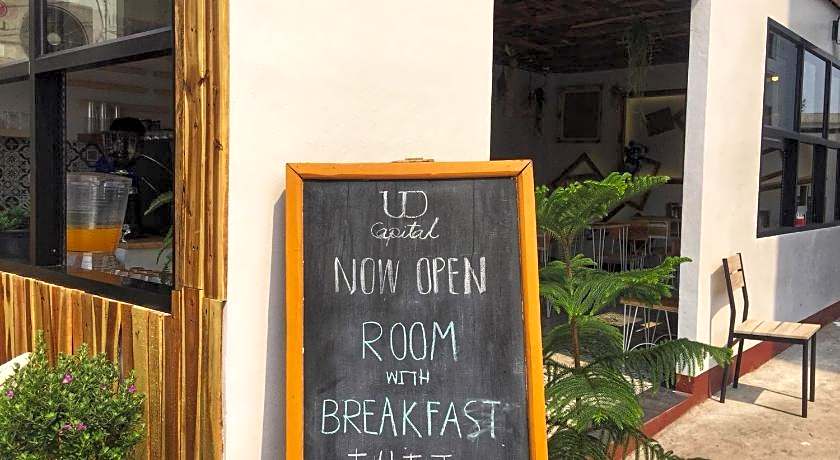 UD
Capital
NOW OPEN
ROOM
WITH
BREAKFAST